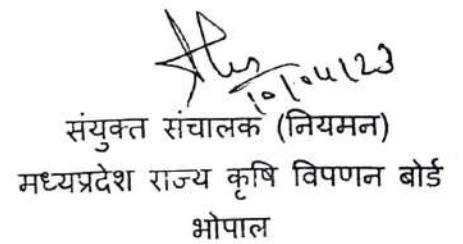 10/04/23
संयुक्त संचालक (नियमन)
मध्यप्रदेश राज्य कृषि विपणन बोर्ड
भोपाल